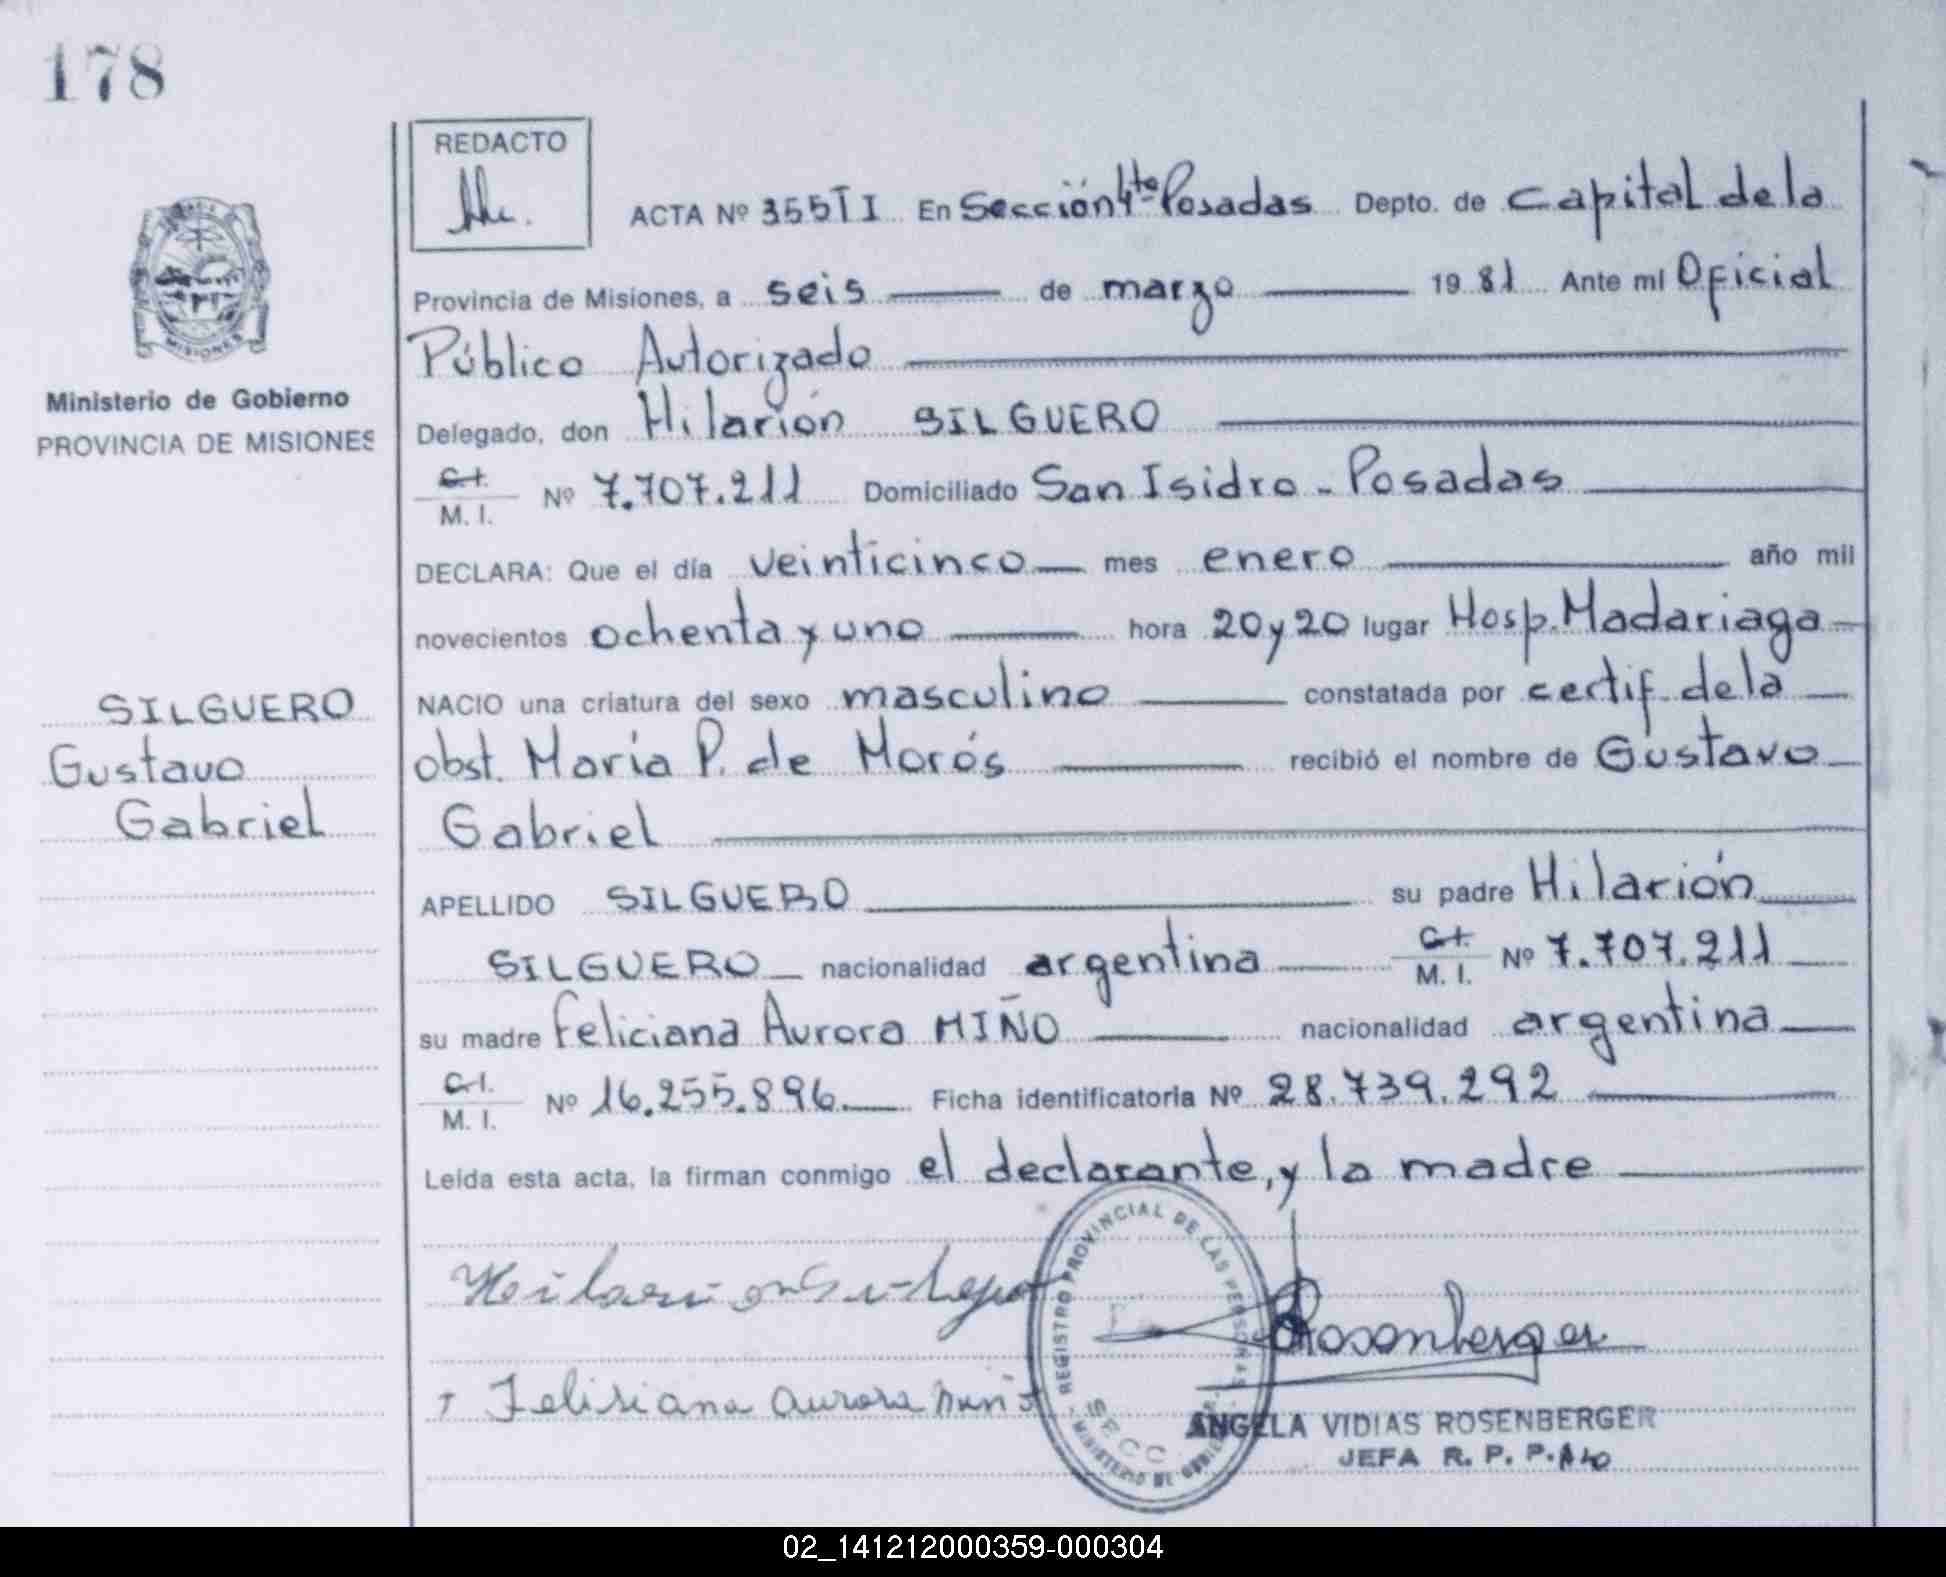 178
REDACTO
ACTA Nº 355 T I En Sección 4ta Posadas Depto. de Capital de la
Provincia de Misiones, a seis de marzo 1981 Ante mí Oficial
Público Autorizado
Delegado, don Hilarión SILGUERO
C.I.
M. I. Nº 7.707.211 Domiciliado San Isidro - Posadas
DECLARA: Que el día veinticinco mes enero año mil
novecientos ochenta y uno hora 20 y 20 lugar Hosp. Madariaga
NACIO una criatura del sexo masculino constatada por certif. de la
obst. María P. de Morós recibió el nombre de Gustavo
Gabriel
APELLIDO SILGUERO su padre Hilarión
SILGUERO nacionalidad argentina C.I. M. I. Nº 7.707.211
su madre Feliciana Aurora MIÑO nacionalidad argentina
C.I.
M. I. Nº 16.255.896 Ficha identificatoria Nº 28.739.292
Leída esta acta, la firman conmigo el declarante, y la madre
MISIONES
Ministerio de Gobierno
PROVINCIA DE MISIONES
SILGUERO
Gustavo
Gabriel
Rosenberger
Felisiana Aurora
REGISTRO PROVINCIAL DE LAS PERSONAS
SECC
MINISTERIO DE GOBIERNO
ANGELA VIDIAS ROSENBERGER
JEFA R. P. P.
02_141212000359-000304